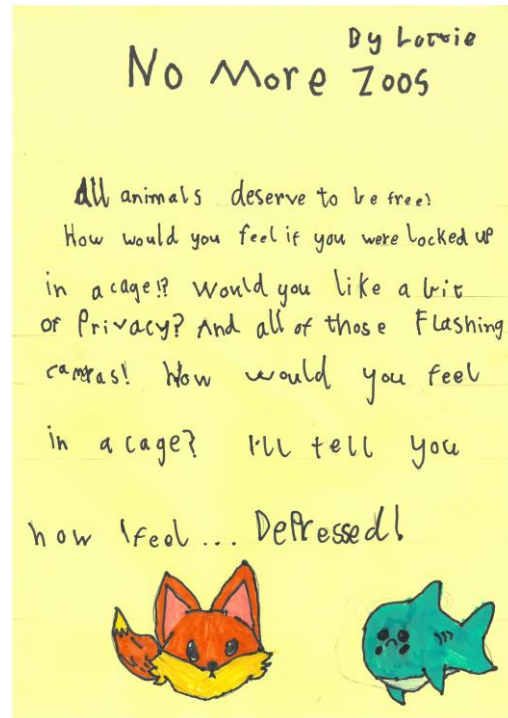 By Lottie
No More Zoos
All animals deserve to be free!
How would you feel if you were locked up
in a cage!? Would you like a bit
of Privacy? And all of those Flashing
camras! How would you feel
in a cage? I'll tell you
how I feel... Depressed!